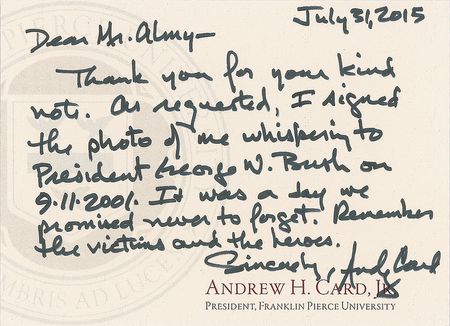 July 31, 2015
Dear Mr. Almy–
Thank you for your kind
note. As requested, I signed
the photo of me whispering to
President George W. Bush on
9.11.2001. It was a day we
promised never to forget. Remember
the victims and the heroes.
Sincerely, Andy Card
ANDREW H. CARD, JR.
PRESIDENT, FRANKLIN PIERCE UNIVERSITY